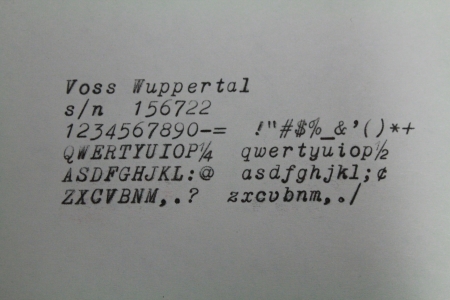 Voss Wuppertal
s/n 156722
1234567890-= !"#$%_&'()*+
QWERTYUIOP¼ qwertyuiop½
ASDFGHJKL:@ asdfghjkl;¢
ZXCVBNM,.? zxcvbnm,./